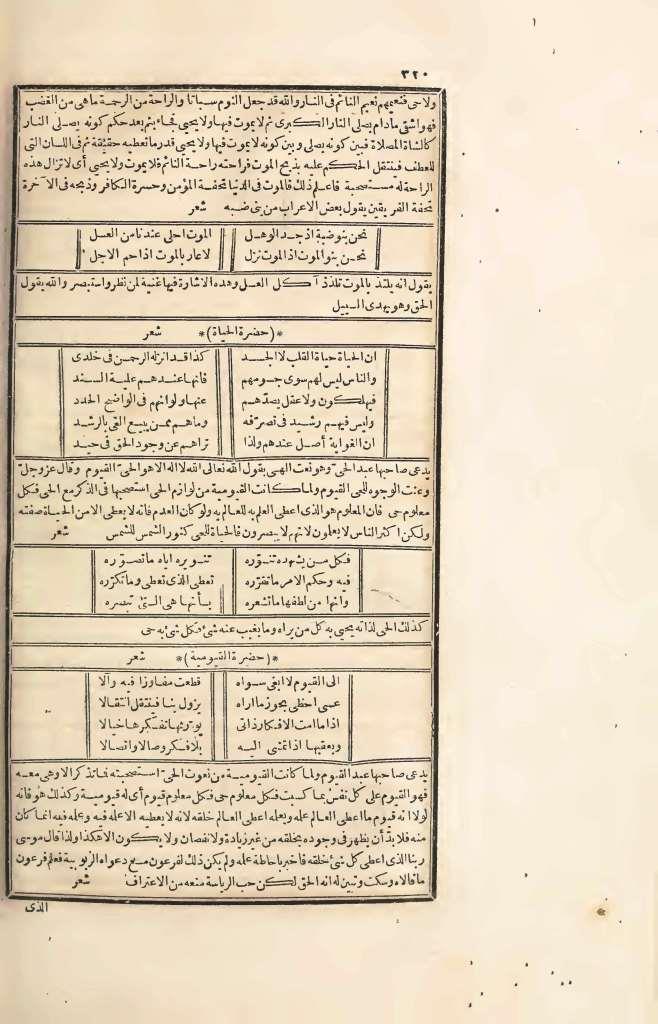 ٣٢٠
ولاحى فنعيمهم نعيم النائم فى النار والله قد جعل النوم سباتا والراحة من الرحمة ماهى من الغضب
فهو أشقى مادام يصلى النار الكبرى ثم لا يموت فيها ولا يحيى فجاء بثم بعد حكم كونه يصلى النار
كالشاة المصلاة فبين كونه يصلى وبين كونه لا يموت فيها ولا يحيى قدر ما تعطيه حقيقة ثم فى اللسان التى
للعطف فينتقل الحكم عليه بذبح الموت فراحته راحة النائم فلا يموت ولا يحيى أى لا تزال هذه
الراحة له مستصحبة فاعلم ذلك فالموت فى الدنيا تحفة المؤمن وحسرة الكافر وذبحه فى الآخرة
تحفة الفريقين يقول بعض الاعراب من بنى ضبه شعر
نحن بنو ضبة اذ جد الوهل الموت احلى عندنا من العسل
نحن بنو الموت اذا الموت نزل لاعار بالموت اذا حم الاجل
يقول انه يلتذ بالموت تلذذ آكل العسل وهذه الاشارة فيها غنية لمن نظر واستبصر والله يقول
الحق وهو يهدى السبيل
*(حضرة الحياة)* شعر
ان الحياة حياة القلب لا الجسد كذا قد انزله الرحمن فى خلدى
والناس ليس لهم سوى جسومهم فانها عندهم علية السند
فيهلكون ولا عقل يصدهم عنها ولو انهم فى الواضح الجدد
وليس فيهم رشيد فى تصرفه وما هم ممن يبيع الغى بالرشد
ان الغواية أصل عندهم ولذا تراهم عن وجود الحق فى حيد
يدعى صاحبها عبد الحى وهو نعت الهى يقول الله تعالى الله لا اله الا هو الحى القيوم وقال عز وجل
وعنت الوجوه للحى القيوم ولما كانت القيومية من لوازم الحى استصحبها فى الذكر مع الحى فكل
معلوم حى فان المعلوم هو الذى اعطى العلم به للعالم به ولو كان العدم فانه لا يعطى الا من الحياة صفته
ولكن اكثر الناس لا يعلمون لانهم لا يبصرون فالحياة للحى كنور الشمس للشمس شعر
فكل من يشهده تنوره تنويره اياه ما تصوره
فيه وحكم الامر ما تقرره تعطى الذى تعطى وما تكرره
وانها من لطفها ما تشعره بأنها هى التى تبصره
كذلك الحى لذاته يحيى به كل من يراه وما يغيب عنه شئ فكل شئ به حى
*(حضرة القيومية)* شعر
الى القيوم لا ابغى سواه قطعت مفاوزا فيه وآلا
عسى احظى بجوز ما اراه يزول بنا فينتقل انتقالا
اذا ما امت الافكار ذاتى
ويعقبها اذا تمشى اليه بلا فكر وصالا واتصالا
يدعى صاحبها عبد القيوم ولما كانت القيومية من نعوت الحى استصحبته فما تذكر الا وهى معه
فهو القيوم على كل نفس بما كسبت فكل معلوم حى فكل معلوم قيوم أى له قيومية وكذلك هو فانه
لولا انه قيوم ما اعطى العالم علمه وبعلمه اعطى العالم خلقه لانه لا يعطيه الا علمه فيه وعلمه فيه انما كان
منه فلا بد أن يظهر فى وجوده بخلقه من غير زيادة ولا نقصان ولا يكون الا هكذا ولذا قال موسى
ربنا الذى اعطى كل شئ خلقه فاخبر باحاطة علمه ولم يكن ذلك لفرعون مع دعواه الربوبية فعلم فرعون
ما قالاه وسكت وتبين له انه الحق لكن حب الرياسة منعه من الاعتراف شعر
الذى